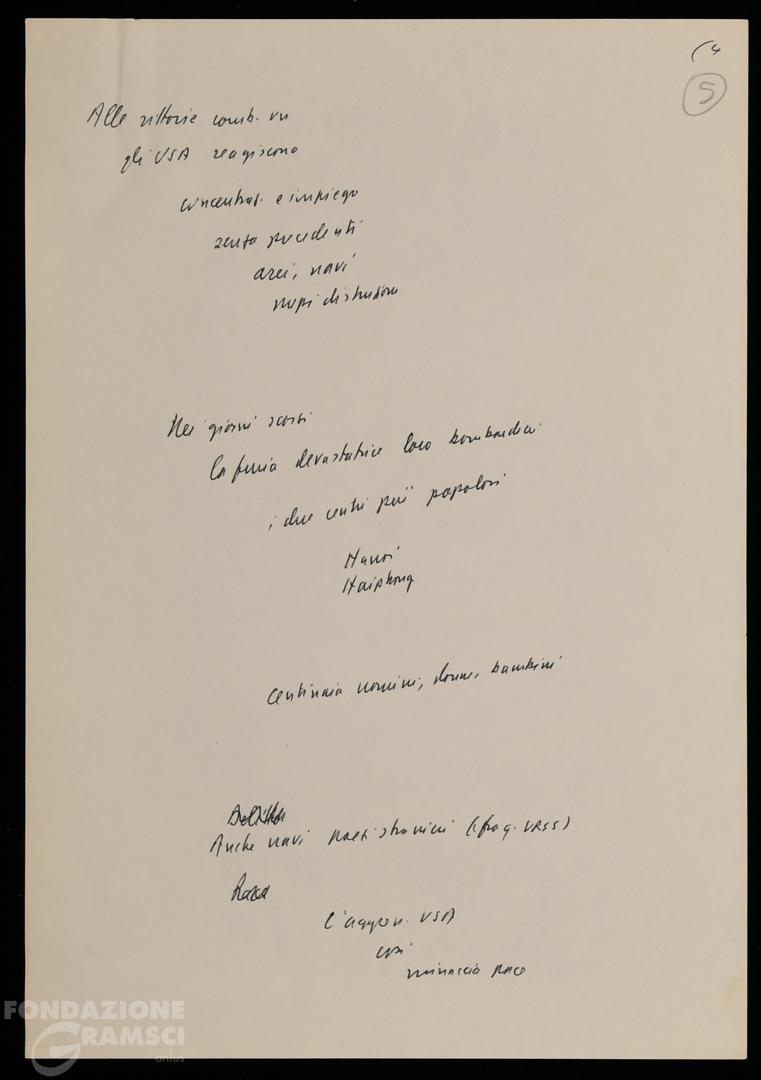 (4
5
Alle vittorie comb. vn
gli USA reagiscono
concentraz. e impiego
senza precedenti
aerei, navi
mezzi distruzione
Nei giorni scorsi
la furia devastatrice loro bombardieri
i due centri più popolosi
Hanoi
Haiphong
Centinaia uomini, donne, bambini
Anche navi paesi stranieri ( URSS)
L'aggress. USA
così
minaccia pace
FONDAZIONE
GRAMSCI
onlus